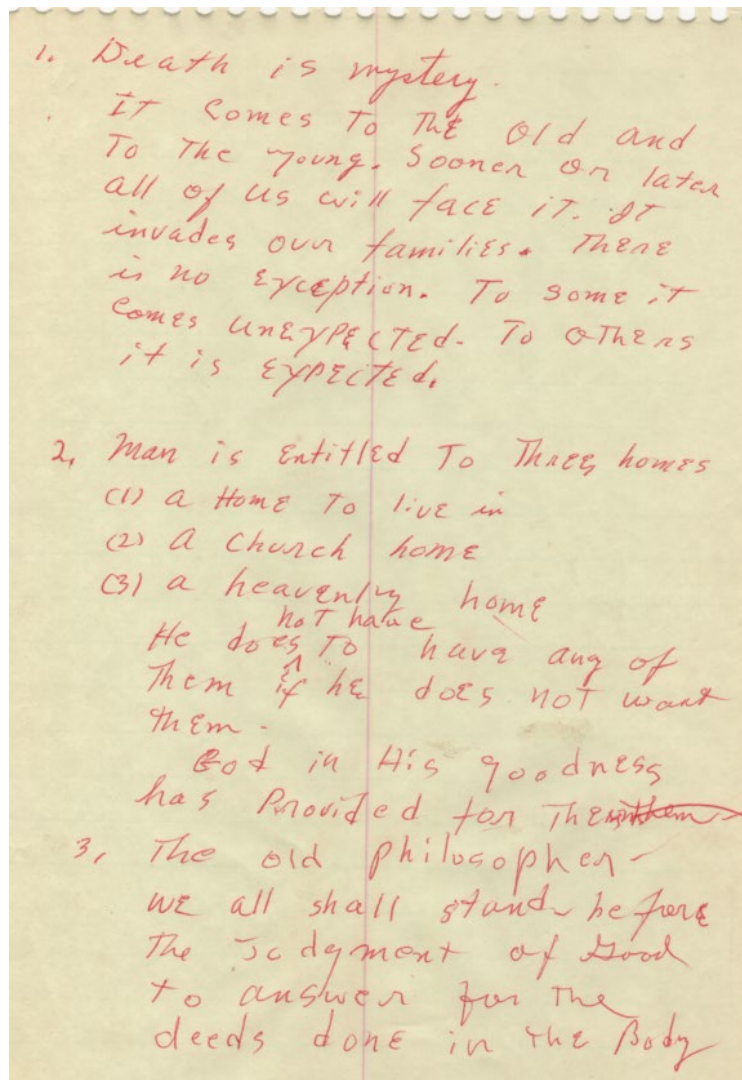 1. Death is mystery.
It comes To The old and
To The young. Sooner or later
all of us will face iT. IT
invades our families. There
is no exception. To some it
comes unexpected. To oThers
it is expected.
2. Man is Entitled To Three homes
(1) a Home To live in
(2) A church home
(3) a heavenly home
not have
He does To have any of
Them if he does not want
them.
God in His goodness
has Provided for Them
3. The old philosopher-
we all shall stand before
The Judgment of Good
to answer for The
deeds done in The Body